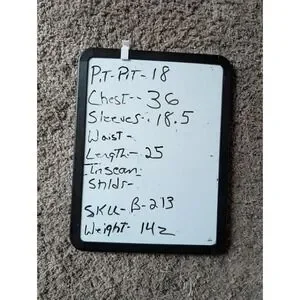 Pit-Pit-18
Chest--36
Sleeves-18.5
Waist-
Length-25
Inseam
Shlds-
SKU-B-213
Weight-14z